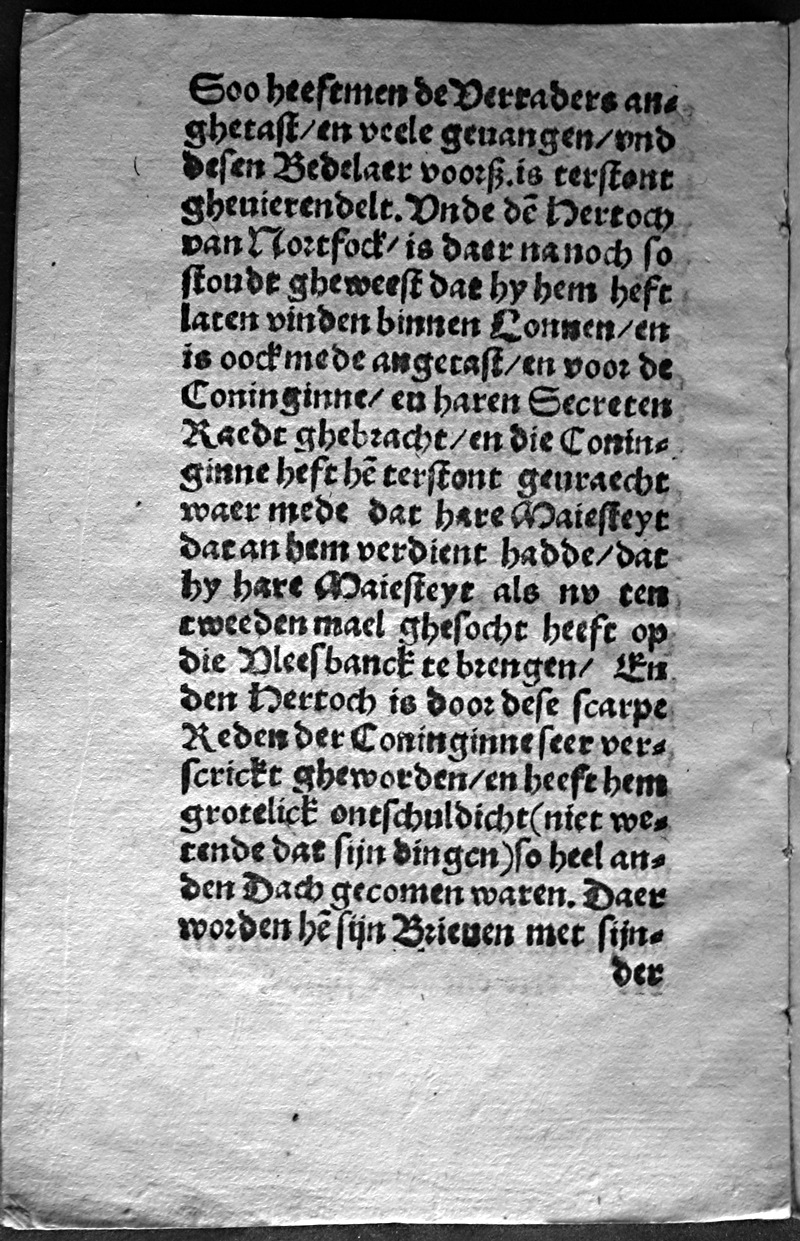 Soo heeftmen de Verraders an⸗
ghetast/en veele geuangen/vnd
desen Bedelaer voorß.is terstont
gheuierendelt. Vnde dẽ Hertoch
van Nortfock/ is daer na noch so
stoudt gheweest dat hy hem heft
laten vinden binnen Lonnen/en
is oock mede angetast/en voor de
Coninginne/ en haren Secreten
Raedt ghebracht/en die Conin⸗
ginne heft hẽ terstont geuraecht
waer mede dat hare Maiesteyt
dat an hem verdient hadde/dat
hy hare Maiesteyt als nv ten
tweeden mael ghesocht heeft op
die Vleesbanck te brengen/ En
den Hertoch is door dese scarpe
Reden der Coninginne seer ver⸗
scrickt gheworden/en heeft hem
grotelick ontschuldicht(niet we⸗
tende dat sijn dingen)so heel an⸗
den Dach gecomen waren. Daer
worden hẽ sijn Brieuen met sijn⸗
der